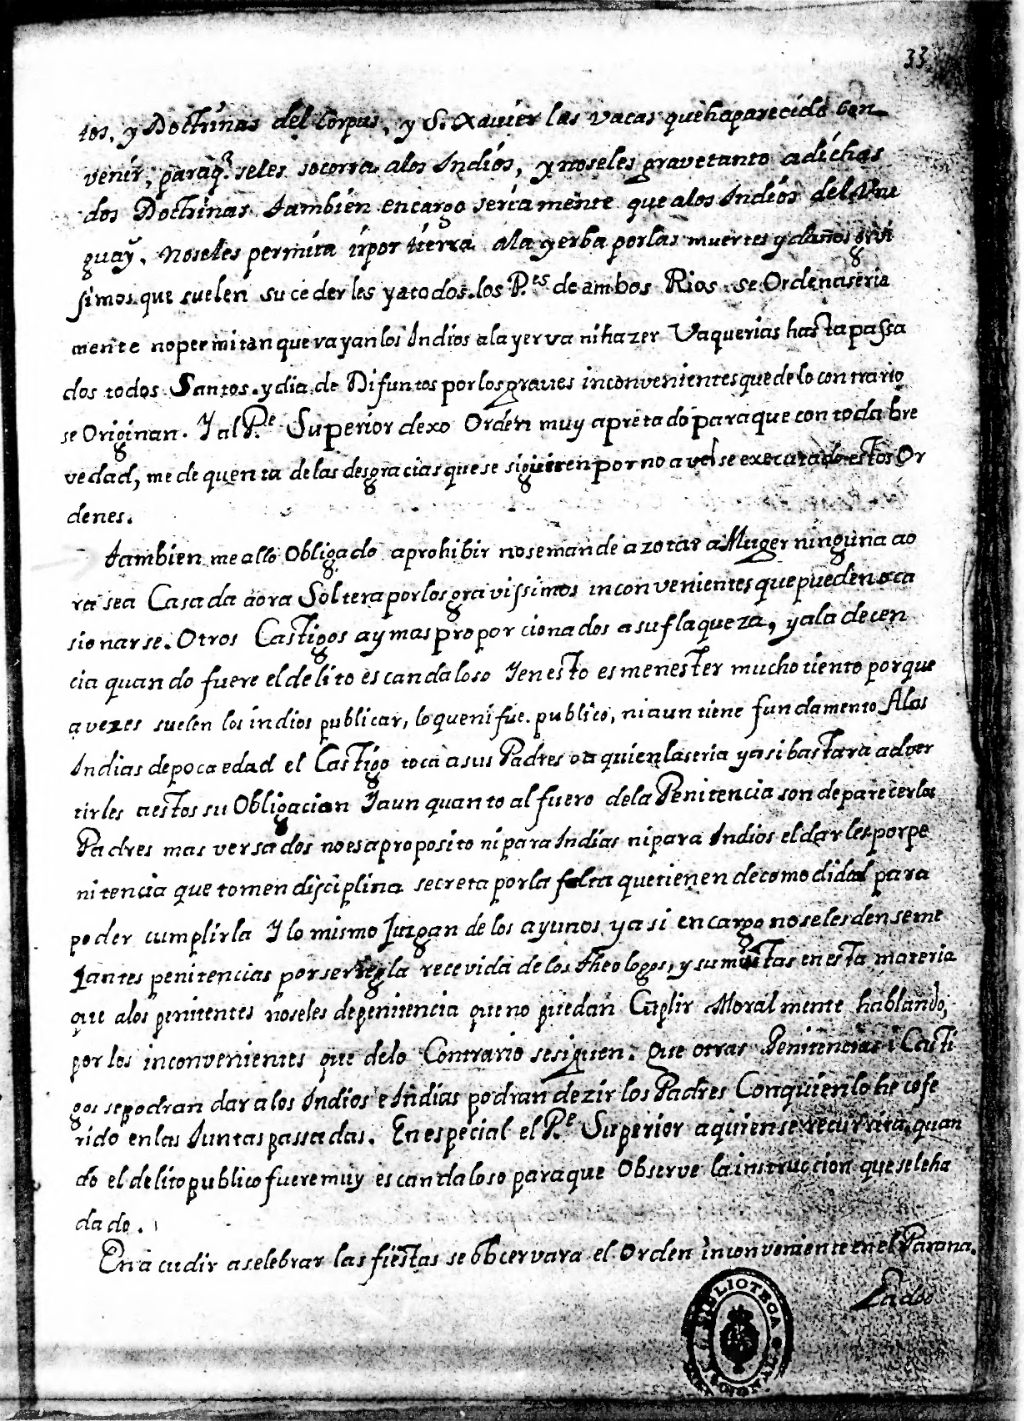 33
tos, y Doctrinas del Corpus, y S. Xavier las vacas que ha parecido con
venir, para q.e seles socorra alos Indios, y noseles grave tanto adichas
dos Doctrinas. Tambien encargo seriamente que alos Indios del Vru
guaÿ, noseles permita ir por tierra ala yerba por las muertes y daños gvi
simos que suelen sucederles y atodos los P.es de ambos Rios se Ordena seria
mente no permitan que vayan los Indios ala yerva ni hazer Vaquerias hasta passa
dos todos Santos. y dia de Difuntos por los graves inconvenientes que de lo contrario
se Originan. Y al P.e Superior dexo Orden muy apretado para que con toda bre
vedad, me de quenta de las desgracias que se siguieren por no averse executado estos Or
denes.
Tambien me allo Obligado a prohibir no se mande azotar a Muger ninguna ao
ra sea Casada aora Soltera por los gravissimos inconvenientes que pueden oca
sionarse. Otros Castigos ay mas proporcionados a su flaqueza, y ala decen
cia quando fuere el delito escandaloso Y en esto es menester mucho tiento porque
a vezes suelen los indios publicar, lo que ni fue publico, ni aun tiene fundamento Alas
Indias de poca edad el Castigo toca a sus Padres o a quien las cria y asi bastara adver
tirles aestos su Obligacion Y aun quanto al fuero dela Penitencia son de parecer los
Padres mas versados no es aproposito ni para Indias ni para Indios el darles por pe
nitencia que tomen disciplina secreta por la falta que tienen de comodidad para
poder cumplirla Y lo mismo Juzgan de los ayunos y asi encargo no seles den seme
Jantes penitencias por ser regla recevida de los Theologos, y sumistas en esta materia
que alos penitentes noseles de penitencia que no puedan Cuplir Moralmente hablando,
por los inconvenientes que delo Contrario se siguen. Que otras Penitencias i Casti
gos se podran dar a los Indios e Indias podran dezir los Padres Con quien lo he cofe
rido en las Juntas passadas. En especial el P.e Superior a quien se recurrira, quan
do el delito publico fuere muy escandaloso para que Observe la instruccion que sele ha
dado.
En acudir aselebrar las fiestas se obcervara el Orden inconveniente en el Parana.
Lados
BIBLIOTECA NACIONAL